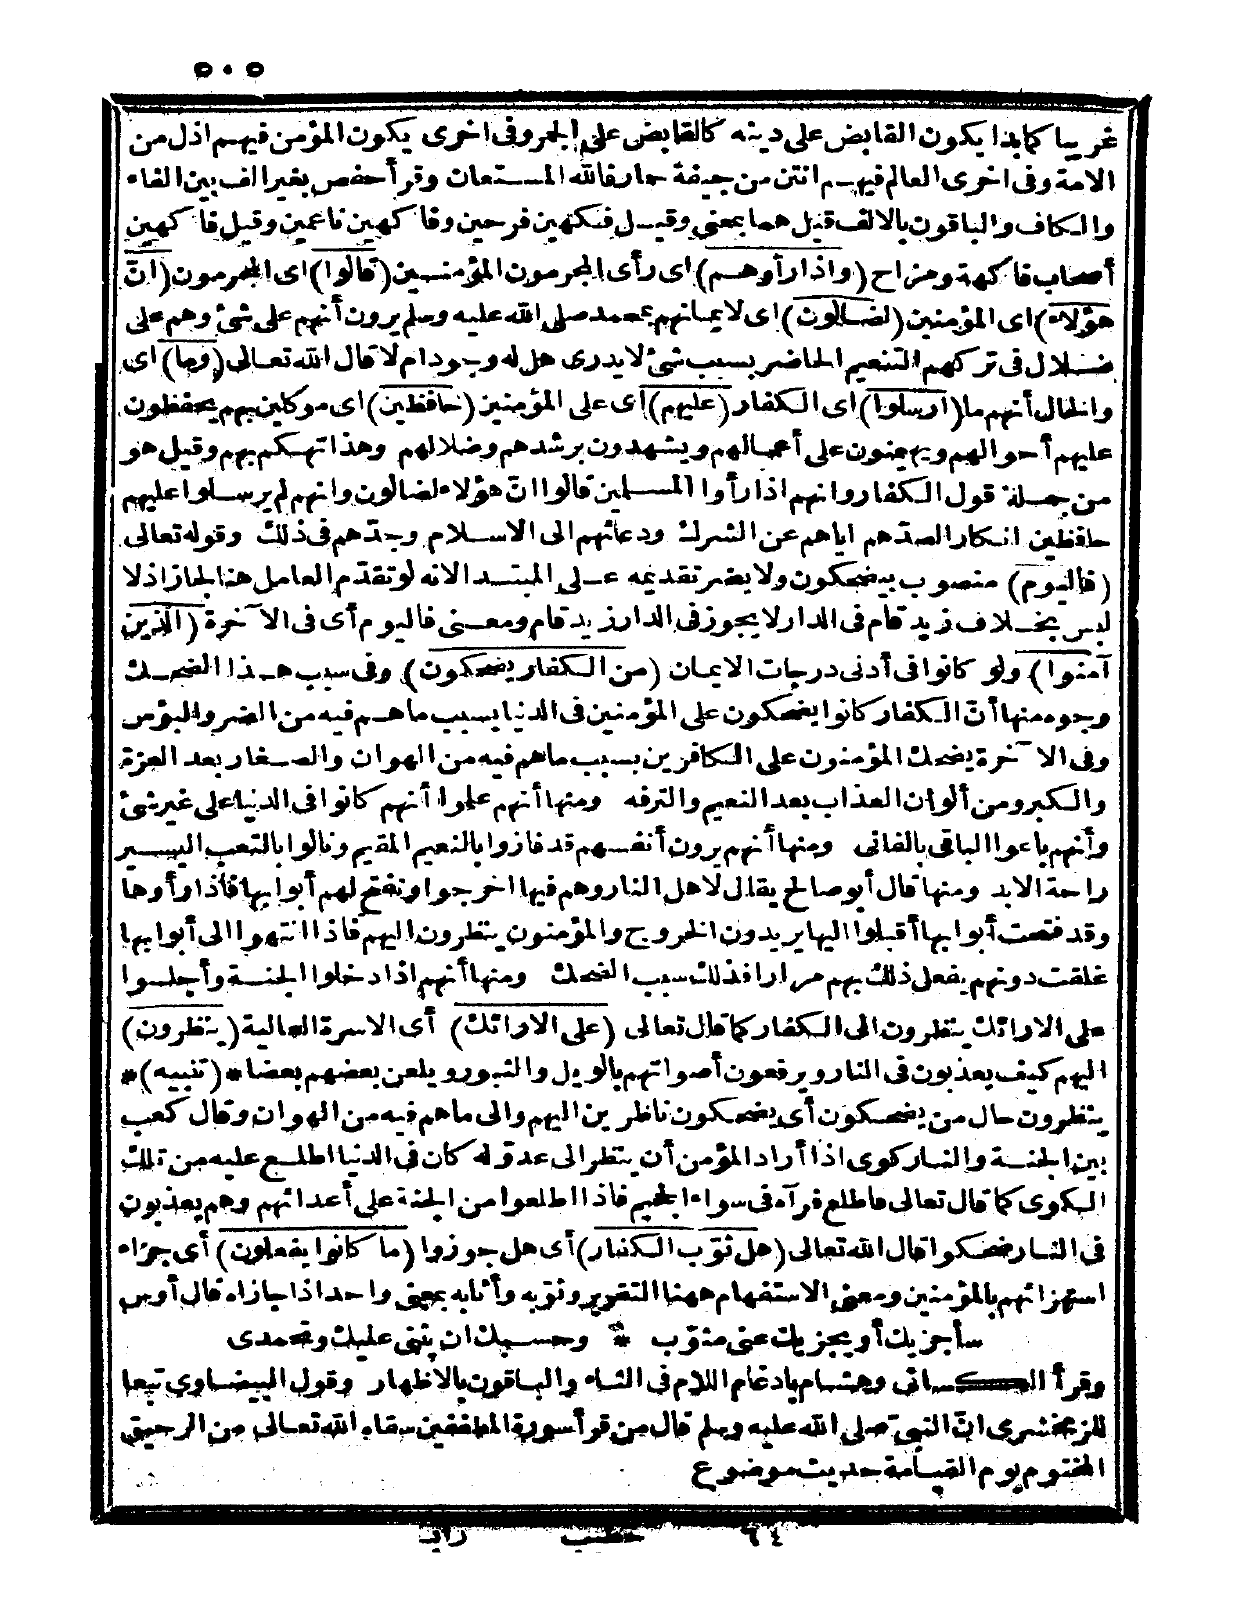 ٥٠٥
غريبا كما بدا يكون القابض على دينه كالقابض على الجمر وفى اخرى يكون المؤمن فيهم اذل من
الامة وفى اخرى العالم فيهم انتن من جيفة حمار فالله المستعان وقرأ حفص بغير الف بين الفاء
والكاف والباقون بالالف قيل هما بمعنى وقيل فكهين فرحين وفاكهين ناعمين وقيل فاكهين
أصحاب فاكهة ومزاح (واذا رأوهم) اى رأى المجرمون المؤمنين (قالوا) اى المجرمون (انّ
هؤلاء) اى المؤمنين (لضالون) اى لايمانهم بمحمد صلى الله عليه وسلم يرون أنهم على شئ وهم على
ضلال فى تركهم التنعيم الحاضر بسبب شئ لا يدرى هل له وجود ام لا قال الله تعالى (وما) اى
والحال أنهم ما (ارسلوا) اى الكفار (عليهم) اى على المؤمنين (حافظين) اى موكلين بهم يحفظون
عليهم أحوالهم ويهيمنون على أعمالهم ويشهدون برشدهم وضلالهم وهذا تهكم بهم وقيل هو
من جملة قول الكفار وانهم اذا رأوا المسلمين قالوا انّ هؤلاء لضالون وانهم لم يرسلوا عليهم
حافظين انكارا لصدّهم اياهم عن الشرك ودعائهم الى الاسلام وجدّهم فى ذلك وقوله تعالى
(فاليوم) منصوب بيضحكون ولا يضر تقديمه على المبتدا لانه لو تقدّم العامل هنا لجاز اذ لا
لبس بخلاف زيد قام فى الدار لا يجوز فى الدار زيد قام ومعنى فاليوم أى فى الآخرة (الذين
آمنوا) ولو كانوا فى أدنى درجات الايمان (من الكفار يضحكون) وفى سبب هذا الضحك
وجوه منها أنّ الكفار كانوا يضحكون على المؤمنين فى الدنيا بسبب ما هم فيه من الضر والبؤس
وفى الآخرة يضحك المؤمنون على الكافرين بسبب ما هم فيه من الهوان والصغار بعد العزة
والكبر ومن ألوان العذاب بعد النعيم والترفه ومنها أنهم علموا أنهم كانوا فى الدنيا على غير شئ
وأنهم باعوا الباقى بالفانى ومنها أنهم يرون أنفسهم قد فازوا بالنعيم المقيم ونالوا بالتعب اليسير
راحة الابد ومنها قال أبو صالح يقال لاهل النار وهم فيها اخرجوا وتفتح لهم أبوابها فاذا رأوها
وقد فتحت أبوابها أقبلوا اليها يريدون الخروج والمؤمنون ينظرون اليهم فاذا انتهوا الى أبوابها
غلقت دونهم يفعل ذلك بهم مرارا فذلك سبب الضحك ومنها أنهم اذا دخلوا الجنة وأجلسوا
على الارائك ينظرون الى الكفار كما قال تعالى (على الارائك) أى الاسرة العالية (ينظرون)
اليهم كيف يعذبون فى النار ويرفعون أصواتهم بالويل والثبور ويلعن بعضهم بعضا * (تنبيه) *
ينظرون حال من يضحكون أى يضحكون ناظرين اليهم والى ما هم فيه من الهوان وقال كعب
بين الجنة والنار كوى اذا أراد المؤمن أن ينظر الى عدوّ له كان فى الدنيا اطلع عليه من تلك
الكوى كما قال تعالى فاطلع فرآه فى سواء الجحيم فاذا اطلعوا من الجنة على أعدائهم وهم يعذبون
فى النار ضحكوا قال الله تعالى (هل ثوّب الكفار) أى هل جوزوا (ما كانوا يفعلون) أى جزاء
استهزائهم بالمؤمنين ومعنى الاستفهام ههنا التقرير وثوبه وأثابه بمعنى واحد اذا جازاه قال أوس
سأجزيك أو يجزيك عنى مثوّب * وحسبك ان يثنى عليك وتحمدى
وقرأ الكسائى وهشام بادغام اللام فى الثاء والباقون بالاظهار وقول البيضاوى تبعا
للزمخشرى انّ النبى صلى الله عليه وسلم قال من قرأ سورة المطففين سقاه الله تعالى من الرحيق
المختوم يوم القيامة حديث موضوع
٦٤ خطيب رابع